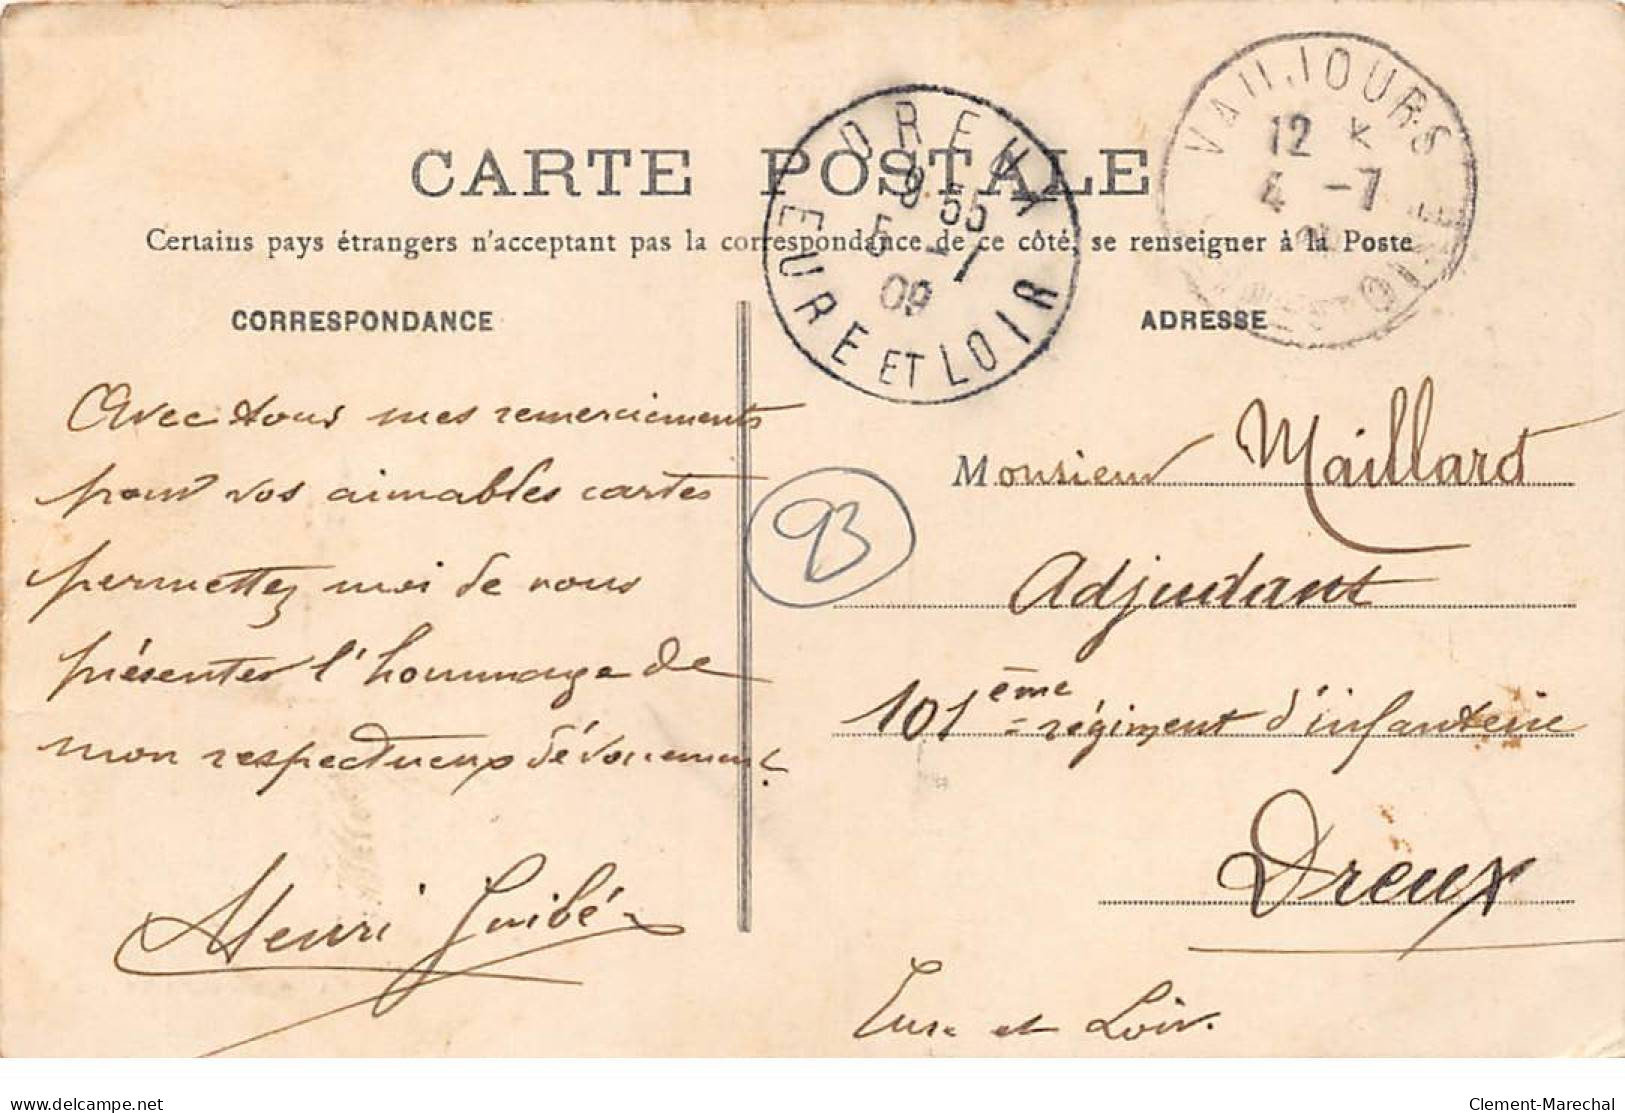 CARTE POSTALE
Certains pays étrangers n'acceptent pas la correspondance de ce côté, se renseigner à la Poste
VAUJOURS
12
4 -7
DREUX
9 55
5 -7
09
EURE ET LOIR
CORRESPONDANCE
Avec tous mes remerciements
pour vos aimables cartes
permettez moi de vous
présenter l'hommage de
mon respectueux dévouement.
Henri Guibé
93
ADRESSE
Monsieur Maillard
Adjudant
101ème régiment d'infanterie
Dreux
Eure et Loir.
delcampe.net
Clement-Marechal